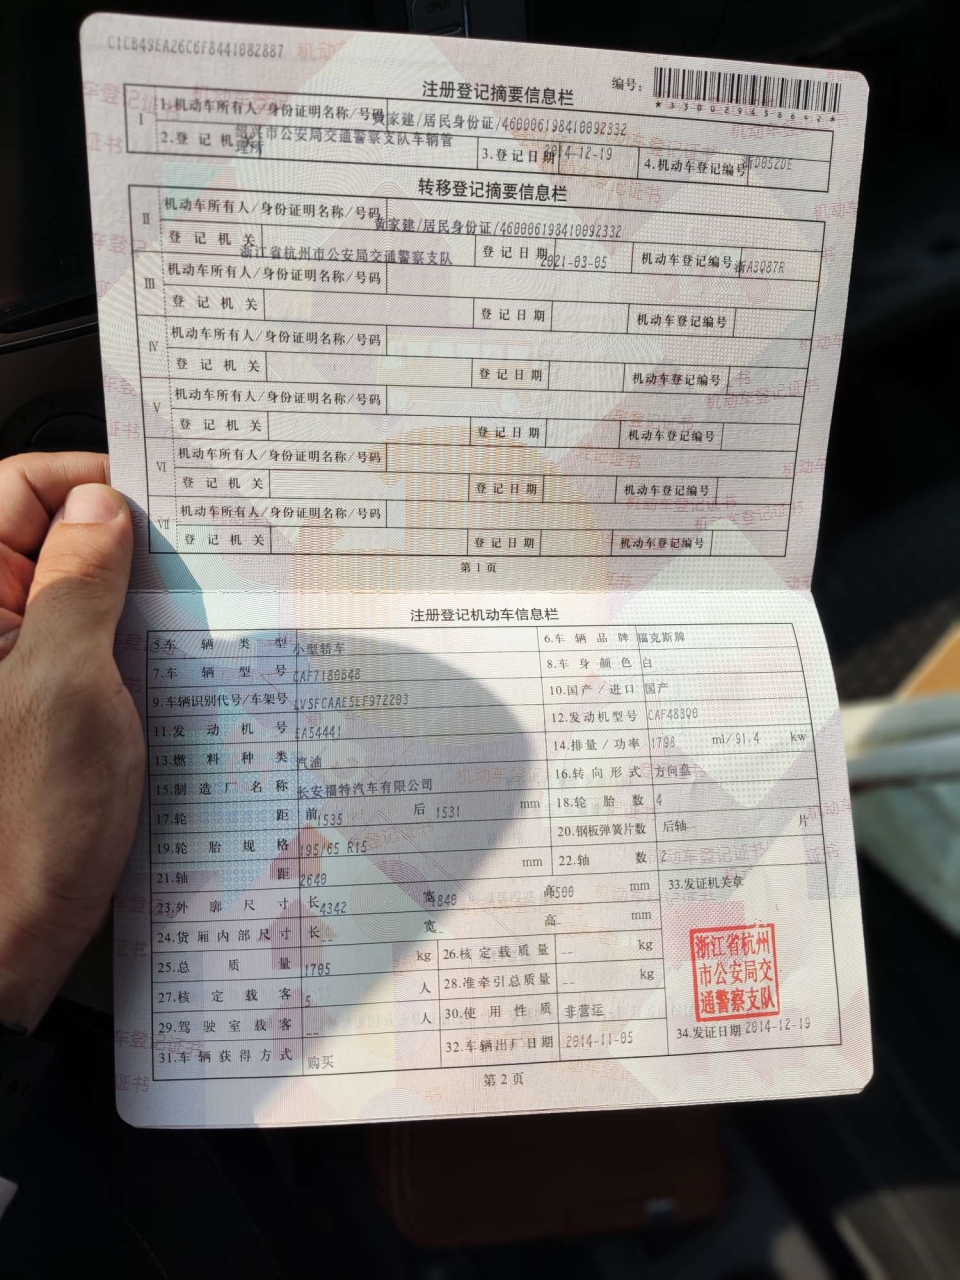 C1CB49EA26C6F8441082887
编号：
*330029458642*
注册登记摘要信息栏
I
1.机动车所有人/身份证明名称/号码 黄家建/居民身份证/460006198410092332
2.登记机关 绍兴市公安局交通警察支队车辆管理所 3.登记日期 2014-12-19 4.机动车登记编号 浙D052DE
转移登记摘要信息栏
II 机动车所有人/身份证明名称/号码 黄家建/居民身份证/460006198410092332
登记机关 浙江省杭州市公安局交通警察支队 登记日期 2021-03-05 机动车登记编号 浙A3Q87R
III 机动车所有人/身份证明名称/号码
登记机关 登记日期 机动车登记编号
IV 机动车所有人/身份证明名称/号码
登记机关 登记日期 机动车登记编号
V 机动车所有人/身份证明名称/号码
登记机关 登记日期 机动车登记编号
VI 机动车所有人/身份证明名称/号码
登记机关 登记日期 机动车登记编号
VII 机动车所有人/身份证明名称/号码
登记机关 登记日期 机动车登记编号
第1页
注册登记机动车信息栏
5.车辆类型 小型轿车 6.车辆品牌 福克斯牌
7.车辆型号 CAF7180B48 8.车身颜色 白
9.车辆识别代号/车架号 LVSFCAAE5EF972203 10.国产/进口 国产
11.发动机号 EA54441 12.发动机型号 CAF483Q0
13.燃料种类 汽油 14.排量/功率 1798 ml/91.4 kw
15.制造厂名称 长安福特汽车有限公司 16.转向形式 方向盘
17.轮距 前 1535 后 1531 mm 18.轮胎数 4
19.轮胎规格 195/65 R15 20.钢板弹簧片数 后轴-- 片
21.轴距 2640 mm 22.轴数 2
23.外廓尺寸 长 4342 宽 1840 高 1500 mm 33.发证机关章
24.货厢内部尺寸 长-- 宽-- 高-- mm
25.总质量 1705 kg 26.核定载质量 -- kg
27.核定载客 5 人 28.准牵引总质量 -- kg
29.驾驶室载客 -- 人 30.使用性质 非营运
31.车辆获得方式 购买 32.车辆出厂日期 2014-11-05 34.发证日期 2014-12-19
浙江省杭州
市公安局交
通警察支队
第2页